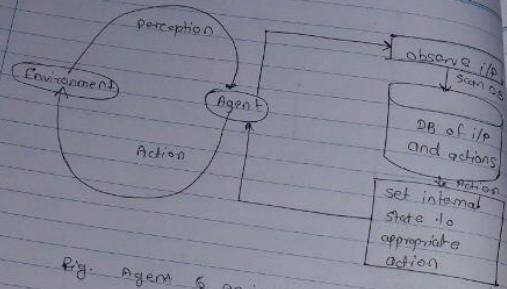 perception
Environment
Agent
Action
observe i/p
scan DB
DB of i/p
and actions
Action
set internal
state to
appropriate
action
Fig. Agent &